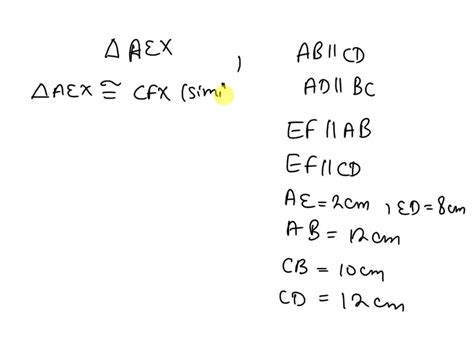 △AEX ,
△AEX ≅ CFX (simi
AB || CD
AD || BC
EF || AB
EF || CD
AE = 2cm , ED = 8cm
AB = 12cm
CB = 10cm
CD = 12cm